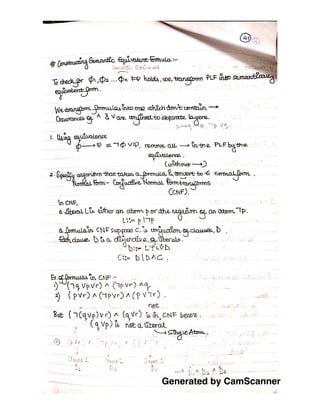 41
# Constructing Semantic Equivalent Formula :-
To check for φ1, φ2 ... φn ⊨ ψ holds, we transform PLF into semantically
equivalent form.
We transform formulas into one which don't contain →
Occurances of ∧ & ∨ are confined to separate layers.
1. Using equivalence
φ → ψ ≡ ¬φ ∨ ψ, remove all → in the PLF by the
equivalence.
(without →)
2. Specify algorithm that takes a formula & convert to normal form.
Normal Form - Conjuctive Normal Form transforms
(CNF)
In CNF,
a literal L is either an atom p or the negation of an atom ¬p.
L ::= p | ¬p
A formula in CNF suppose C is conjuction of clauses, D.
Each clause D is a disjunctive of literals.
D ::= L | L ∨ D
C ::= D | D ∧ C.
Ex. of formulas in CNF :-
1) (¬q ∨ p ∨ r) ∧ (¬p ∨ r) ∧ q.
2) (p ∨ r) ∧ (¬p ∨ r) ∧ (p ∨ ¬r).
not
But (¬(q ∨ p) ∨ r) ∧ (q ∨ r) is in CNF because
(q ∨ p) is not a literal
→ Single Atom.
Generated by CamScanner